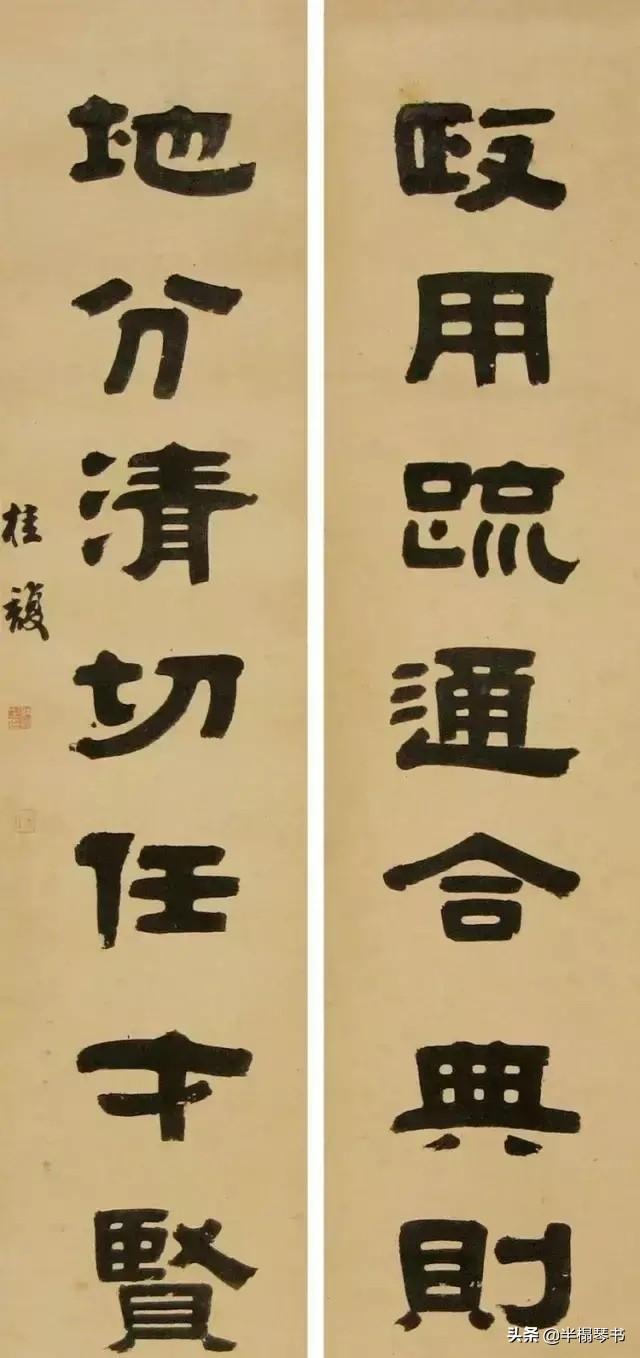 政用疏通合典則
地分清切任才賢
桂馥
头条 @半榻琴书